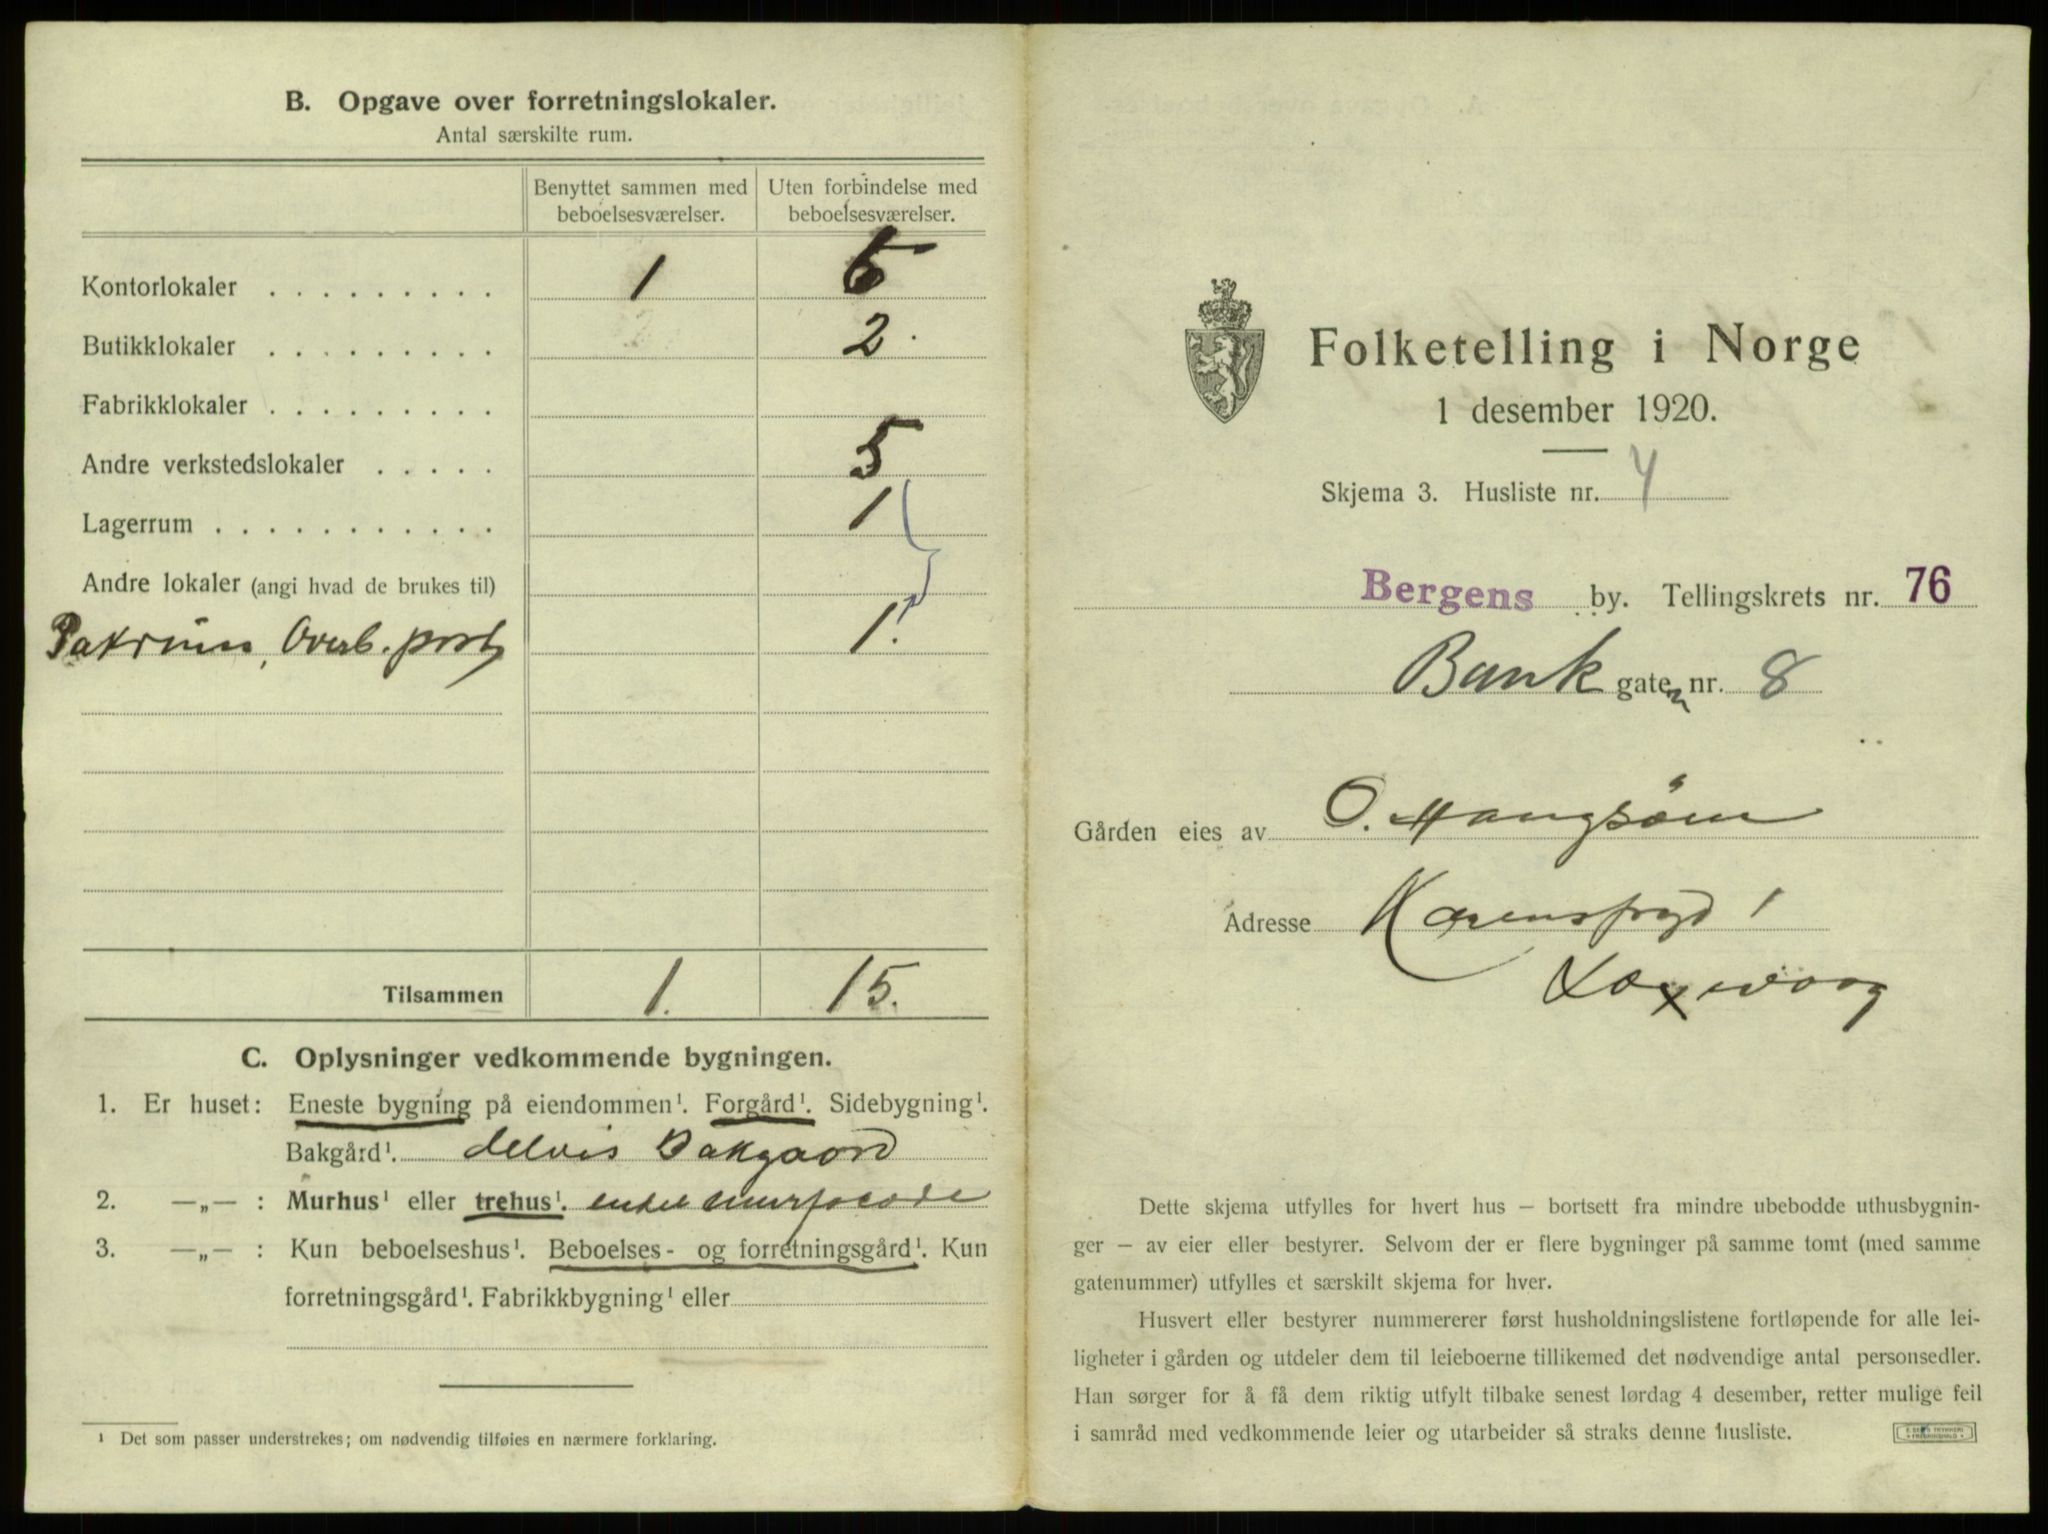 B. Opgave over forretningslokaler.
Antal særskilte rum.
Benyttet sammen med beboelsesværelser.
Uten forbindelse med beboelsesværelser.
Kontorlokaler . . . . . . . . . 1
Butikklokaler . . . . . . . . . 2
Fabrikklokaler . . . . . . . . .
Andre verkstedslokaler . . . . . 5
Lagerrum . . . . . . . . . . . . 1
Andre lokaler (angi hvad de brukes til)
Pakrum, Overb. post 1.
Tilsammen 1. 15.
C. Oplysninger vedkommende bygningen.
1. Er huset: Eneste bygning på eiendommen¹. Forgård¹. Sidebygning¹.
Bakgård¹. delvis Bakgaard
2. —„— : Murhus¹ eller trehus¹. enkel murfacade
3. —„— : Kun beboelseshus¹. Beboelses- og forretningsgård¹. Kun
forretningsgård¹. Fabrikkbygning¹ eller
¹ Det som passer understrekes; om nødvendig tilføies en nærmere forklaring.
Folketelling i Norge
1 desember 1920.
Skjema 3. Husliste nr. 4
Bergens by. Tellingskrets nr. 76
Bank gaten nr. 8
Gården eies av O.
Adresse Karensfryd 1
Laxevaag
Dette skjema utfylles for hvert hus — bortsett fra mindre ubebodde uthusbygnin-
ger — av eier eller bestyrer. Selvom der er flere bygninger på samme tomt (med samme
gatenummer) utfylles et særskilt skjema for hver.
Husvert eller bestyrer nummererer først husholdningslistene fortløpende for alle lei-
ligheter i gården og utdeler dem til leieboerne tillikemed det nødvendige antal personsedler.
Han sørger for å få dem riktig utfylt tilbake senest lørdag 4 desember, retter mulige feil
i samråd med vedkommende leier og utarbeider så straks denne husliste.